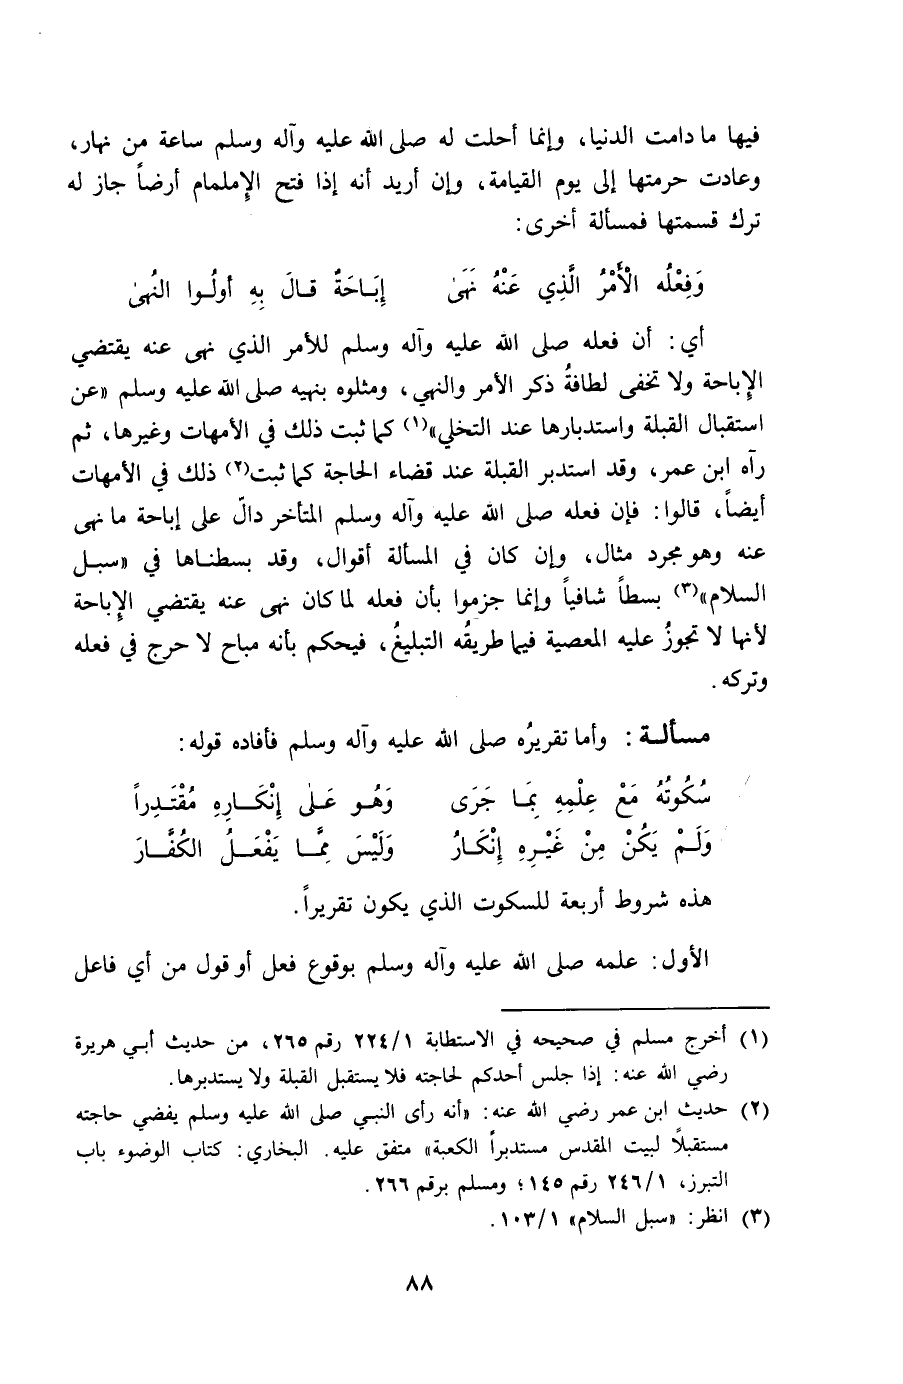 فيها ما دامت الدنيا، وإنما أحلت له صلى الله عليه وآله وسلم ساعة من نهار،
وعادت حرمتها إلى يوم القيامة، وإن أريد أنه إذا فتح الإملمام أرضاً جاز له
ترك قسمتها فمسألة أخرى:
وَفِعْلُه الْأَمْرُ الَّذِي عَنْهُ نَهَىٰ إِبَاحَةٌ قالَ بِهِ أولُوا النُهىٰ
أي: أن فعله صلى الله عليه وآله وسلم للأمر الذي نهى عنه يقتضي
الإباحة ولا تخفى لطافةُ ذكر الأمر والنهي، ومثلوه بنهيه صلى الله عليه وسلم «عن
استقبال القبلة واستدبارها عند التخلي»(١) كما ثبت ذلك في الأمهات وغيرها، ثم
رآه ابن عمر، وقد استدبر القبلة عند قضاء الحاجة كما ثبت(٢) ذلك في الأمهات
أيضاً، قالوا: فإن فعله صلى الله عليه وآله وسلم المتأخر دالّ على إباحة ما نهى
عنه وهو مجرد مثال، وإن كان في المسألة أقوال، وقد بسطناها في «سبل
السلام»(٣) بسطاً شافياً وإنما جزموا بأن فعله لما كان نهى عنه يقتضي الإباحة
لأنها لا تجوزُ عليه المعصية فيما طريقُه التبليغُ، فيحكم بأنه مباح لا حرج في فعله
وتركه.
مسألة: وأما تقريرُه صلى الله عليه وآله وسلم فأفاده قوله:
سُكُوتُهُ مَعْ عِلْمِهِ بِمَا جَرَى وَهُو عَلىٰ إِنْكَارِهِ مُقْتَدِراً
وَلَمْ يَكُنْ مِنْ غَيْرِهِ إِنْكَارُ وَلَيْسَ مِمَّا يَفْعَلُ الكُفَّارَ
هذه شروط أربعة للسكوت الذي يكون تقريراً.
الأول: علمه صلى الله عليه وآله وسلم بوقوع فعل أو قول من أي فاعل
(١) أخرج مسلم في صحيحه في الاستطابة ٢٢٤/١ رقم ٢٦٥، من حديث أبي هريرة
رضي الله عنه: إذا جلس أحدكم لحاجته فلا يستقبل القبلة ولا يستدبرها.
(٢) حديث ابن عمر رضي الله عنه: «أنه رأى النبي صلى الله عليه وسلم يفضي حاجته
مستقبلاً لبيت المقدس مستدبراً الكعبة» متفق عليه. البخاري: كتاب الوضوء باب
التبرز، ٢٤٦/١ رقم ١٤٥؛ ومسلم برقم ٢٦٦.
(٣) انظر: «سبل السلام» ١٠٣/١.
٨٨